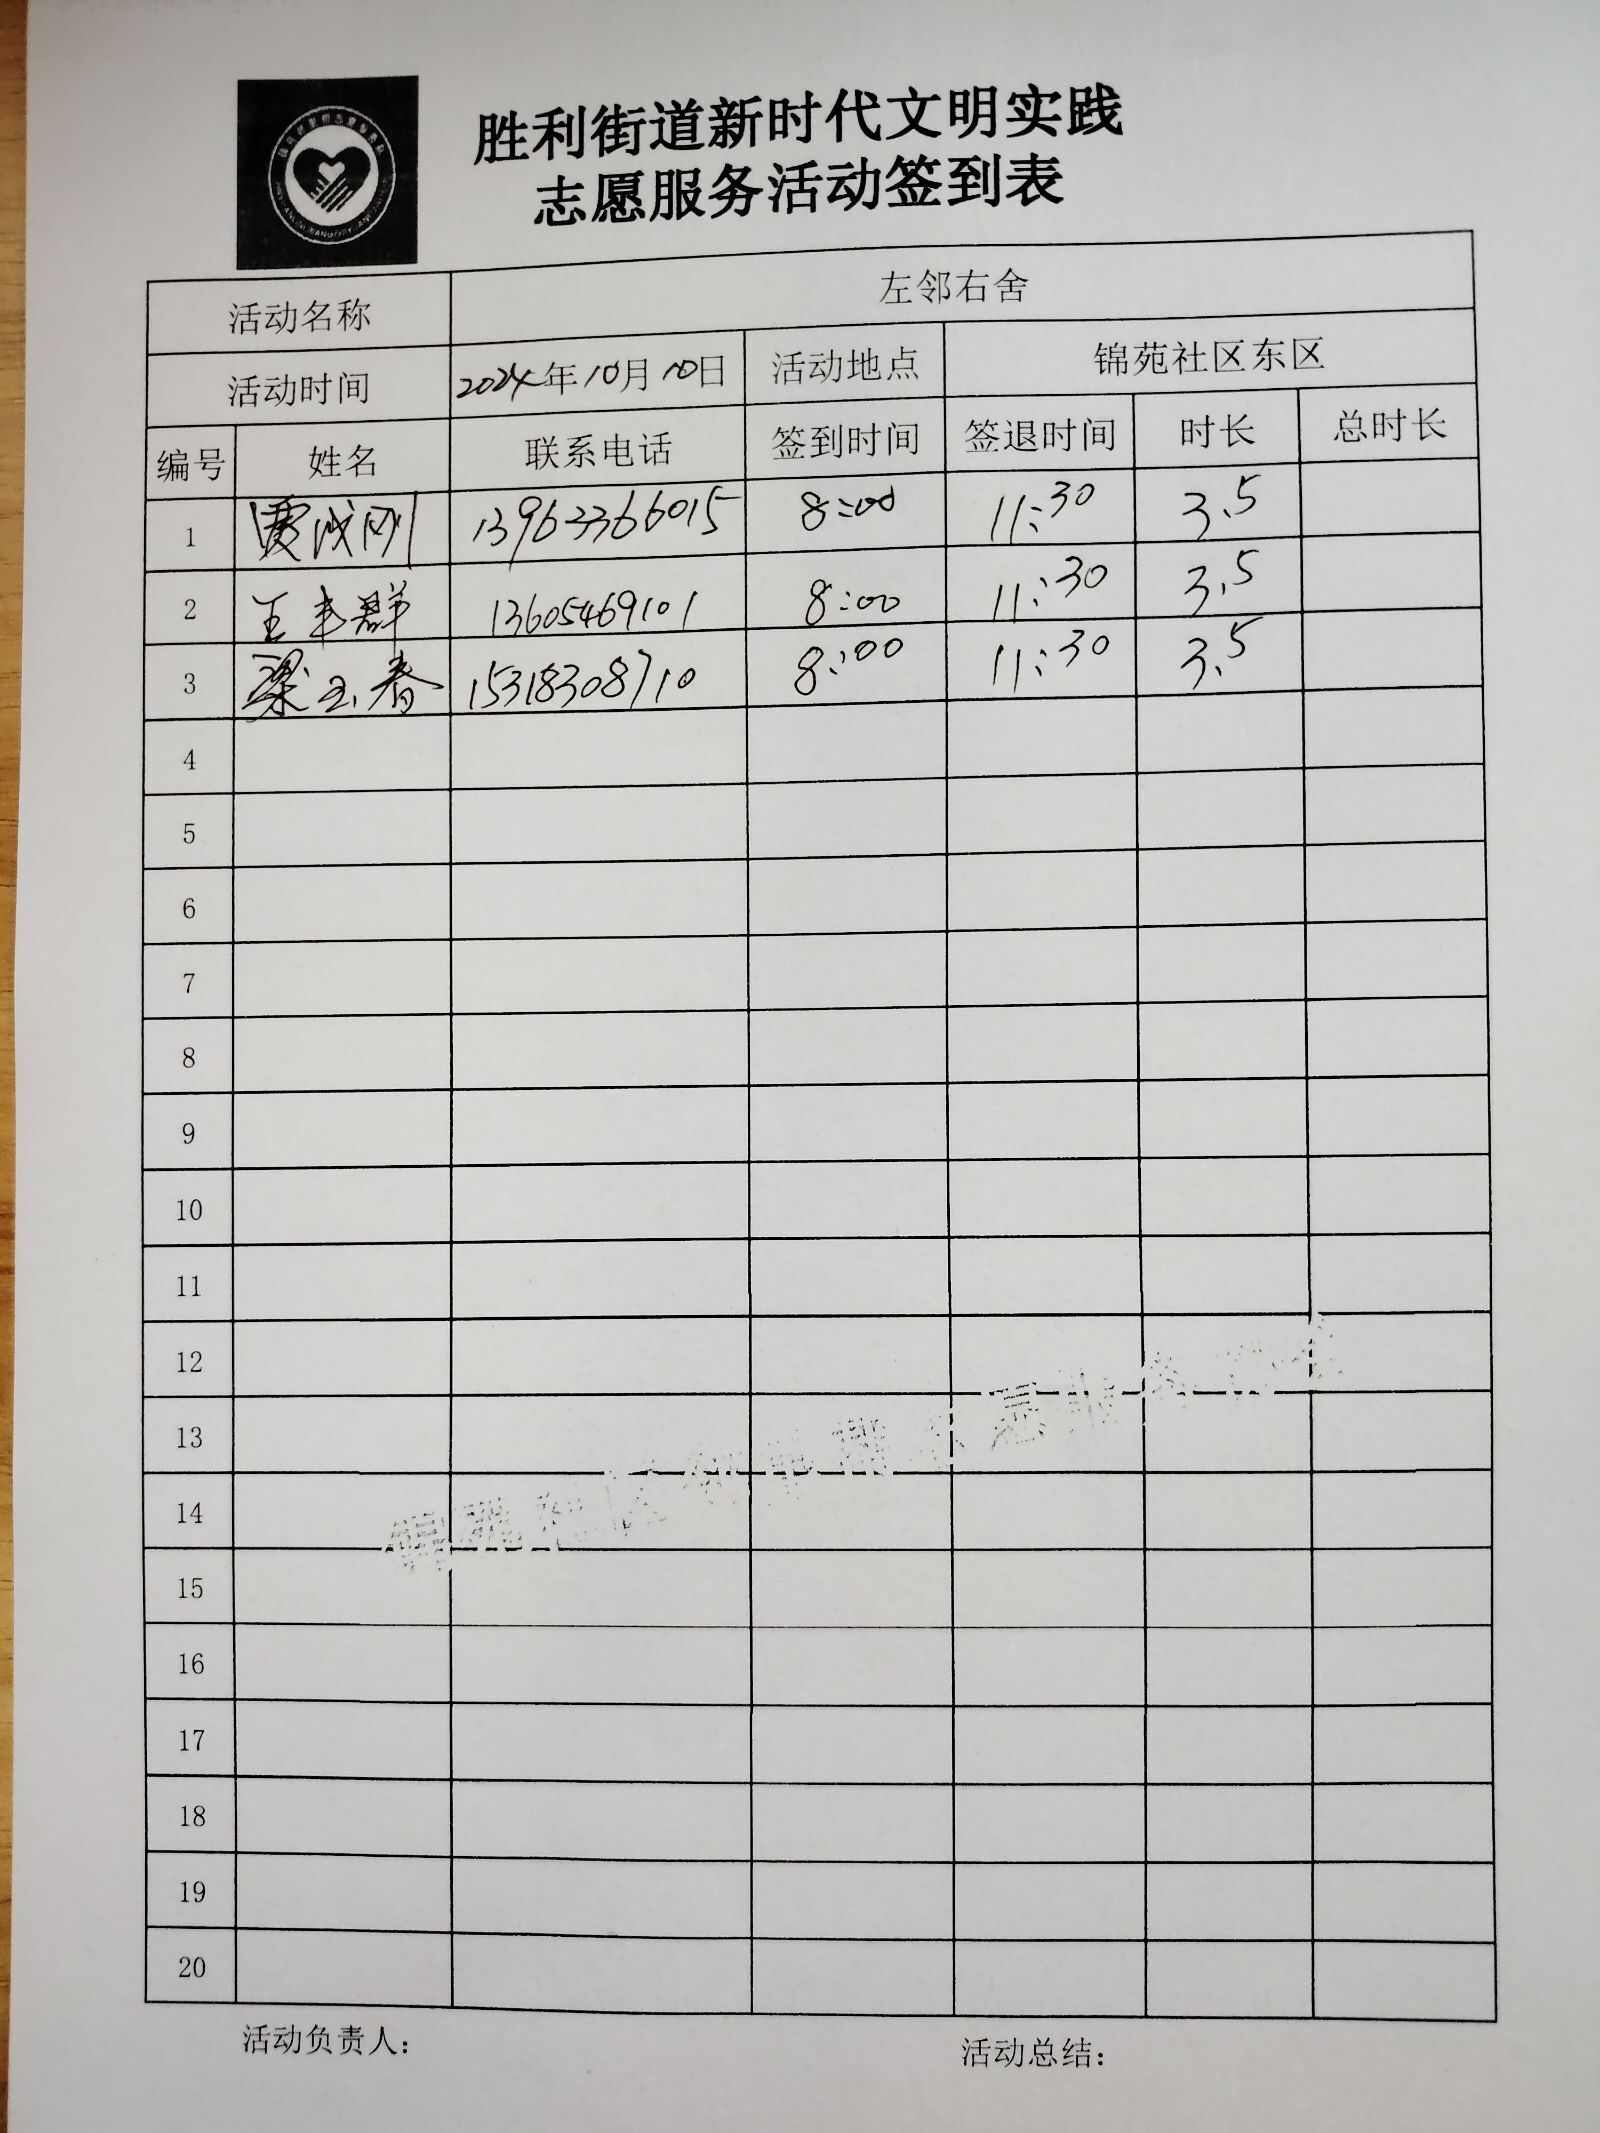 胜利街道新时代文明实践
志愿服务活动签到表
活动名称 左邻右舍
活动时间 2024年10月10日 活动地点 锦苑社区东区
编号 姓名 联系电话 签到时间 签退时间 时长 总时长
1 贾成刚 13963366015 8:00 11:30 3.5
2 王丰群 13605469101 8:00 11:30 3.5
3 梁玉春 15318308710 8:00 11:30 3.5
4
5
6
7
8
9
10
11
12
13
14
15
16
17
18
19
20
活动负责人: 活动总结: